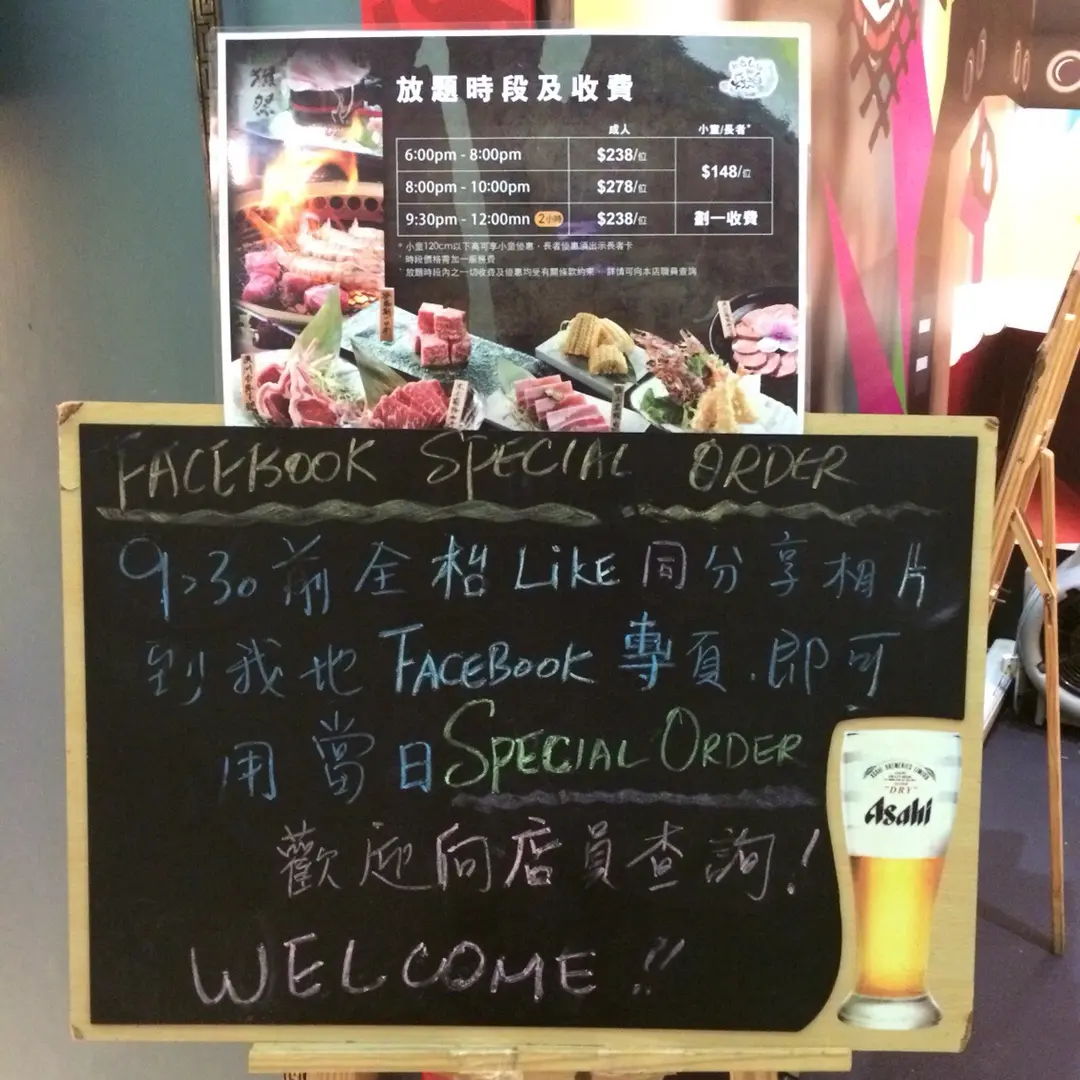 放題時段及收費
成人 小童/長者*
6:00pm - 8:00pm $238/位 $148/位
8:00pm - 10:00pm $278/位
9:30pm - 12:00mn 2小時 $238/位 劃一收費
* 小童120cm以下高可享小童優惠，長者優惠須出示長者卡
* 時段價格需加一服務費
* 放題時段內之一切收費及優惠均受有關條款約束， 詳情可向本店職員查詢
FACEBOOK SPECIAL ORDER
9:30前全枱LiKE同分享相片
到我地FACEBOOK專頁.即可
用當日SPECIAL ORDER
歡迎向店員查詢!
WELCOME!!
ASAHI BREWERIES LIMITED
"DRY"
Asahi